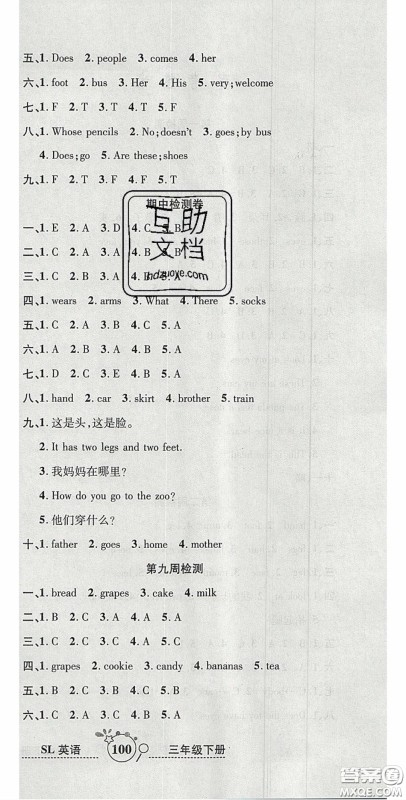 五、1. Does 2. people 3. comes 4. her
六、1. foot 2. bus 3. Her 4. His 5. very;welcome
七、1. F 2. T 3. T 4. T 5. F
八、1. Whose pencils 2. No;doesn't 3. goes;by bus
4. Does;go 5. Are these;shoes
九、1. F 2. T 3. F 4. F 5. T
期中检测卷
一、1. E 2. A 3. D 4. C 5. B
二、1. C 2. A 3. C 4.
三、1. C 2. A 3. A 4. 5. A
四、1. wears 2. arms 3. What 4. There 5. socks
五、1. C 2. A 3. B 4. C 5. A
六、1. B 2. C 3. A 4. B 5. A
七、1. D 2. C 3. E 4. A 5. B
八、1. hand 2. car 3. skirt 4. brother 5. train
九、1. 这是头,这是脸。
2. It has two legs and two feet.
3. 我妈妈在哪里?
4. How do you go to the zoo?
5. 他们穿什么?
十、1. father 2. goes 3. home 4. mother
第九周检测
一、1. bread 2. grapes 3. cake 4. milk
二、1. B 2. C 3. A 4. A 5. B
三、1. C 2. C 3. A 4. A 5. C
四、1. grapes 2. cookie 3. candy 4. bananas 5. tea
五、1. B 2. C 3. A 4. B 5. A
六、1. C 2. A 3. B 4. A 5. C
SL 英语 100 三年级下册
互助
文档
hdzuoye.com
答案圈
MXQE.COM